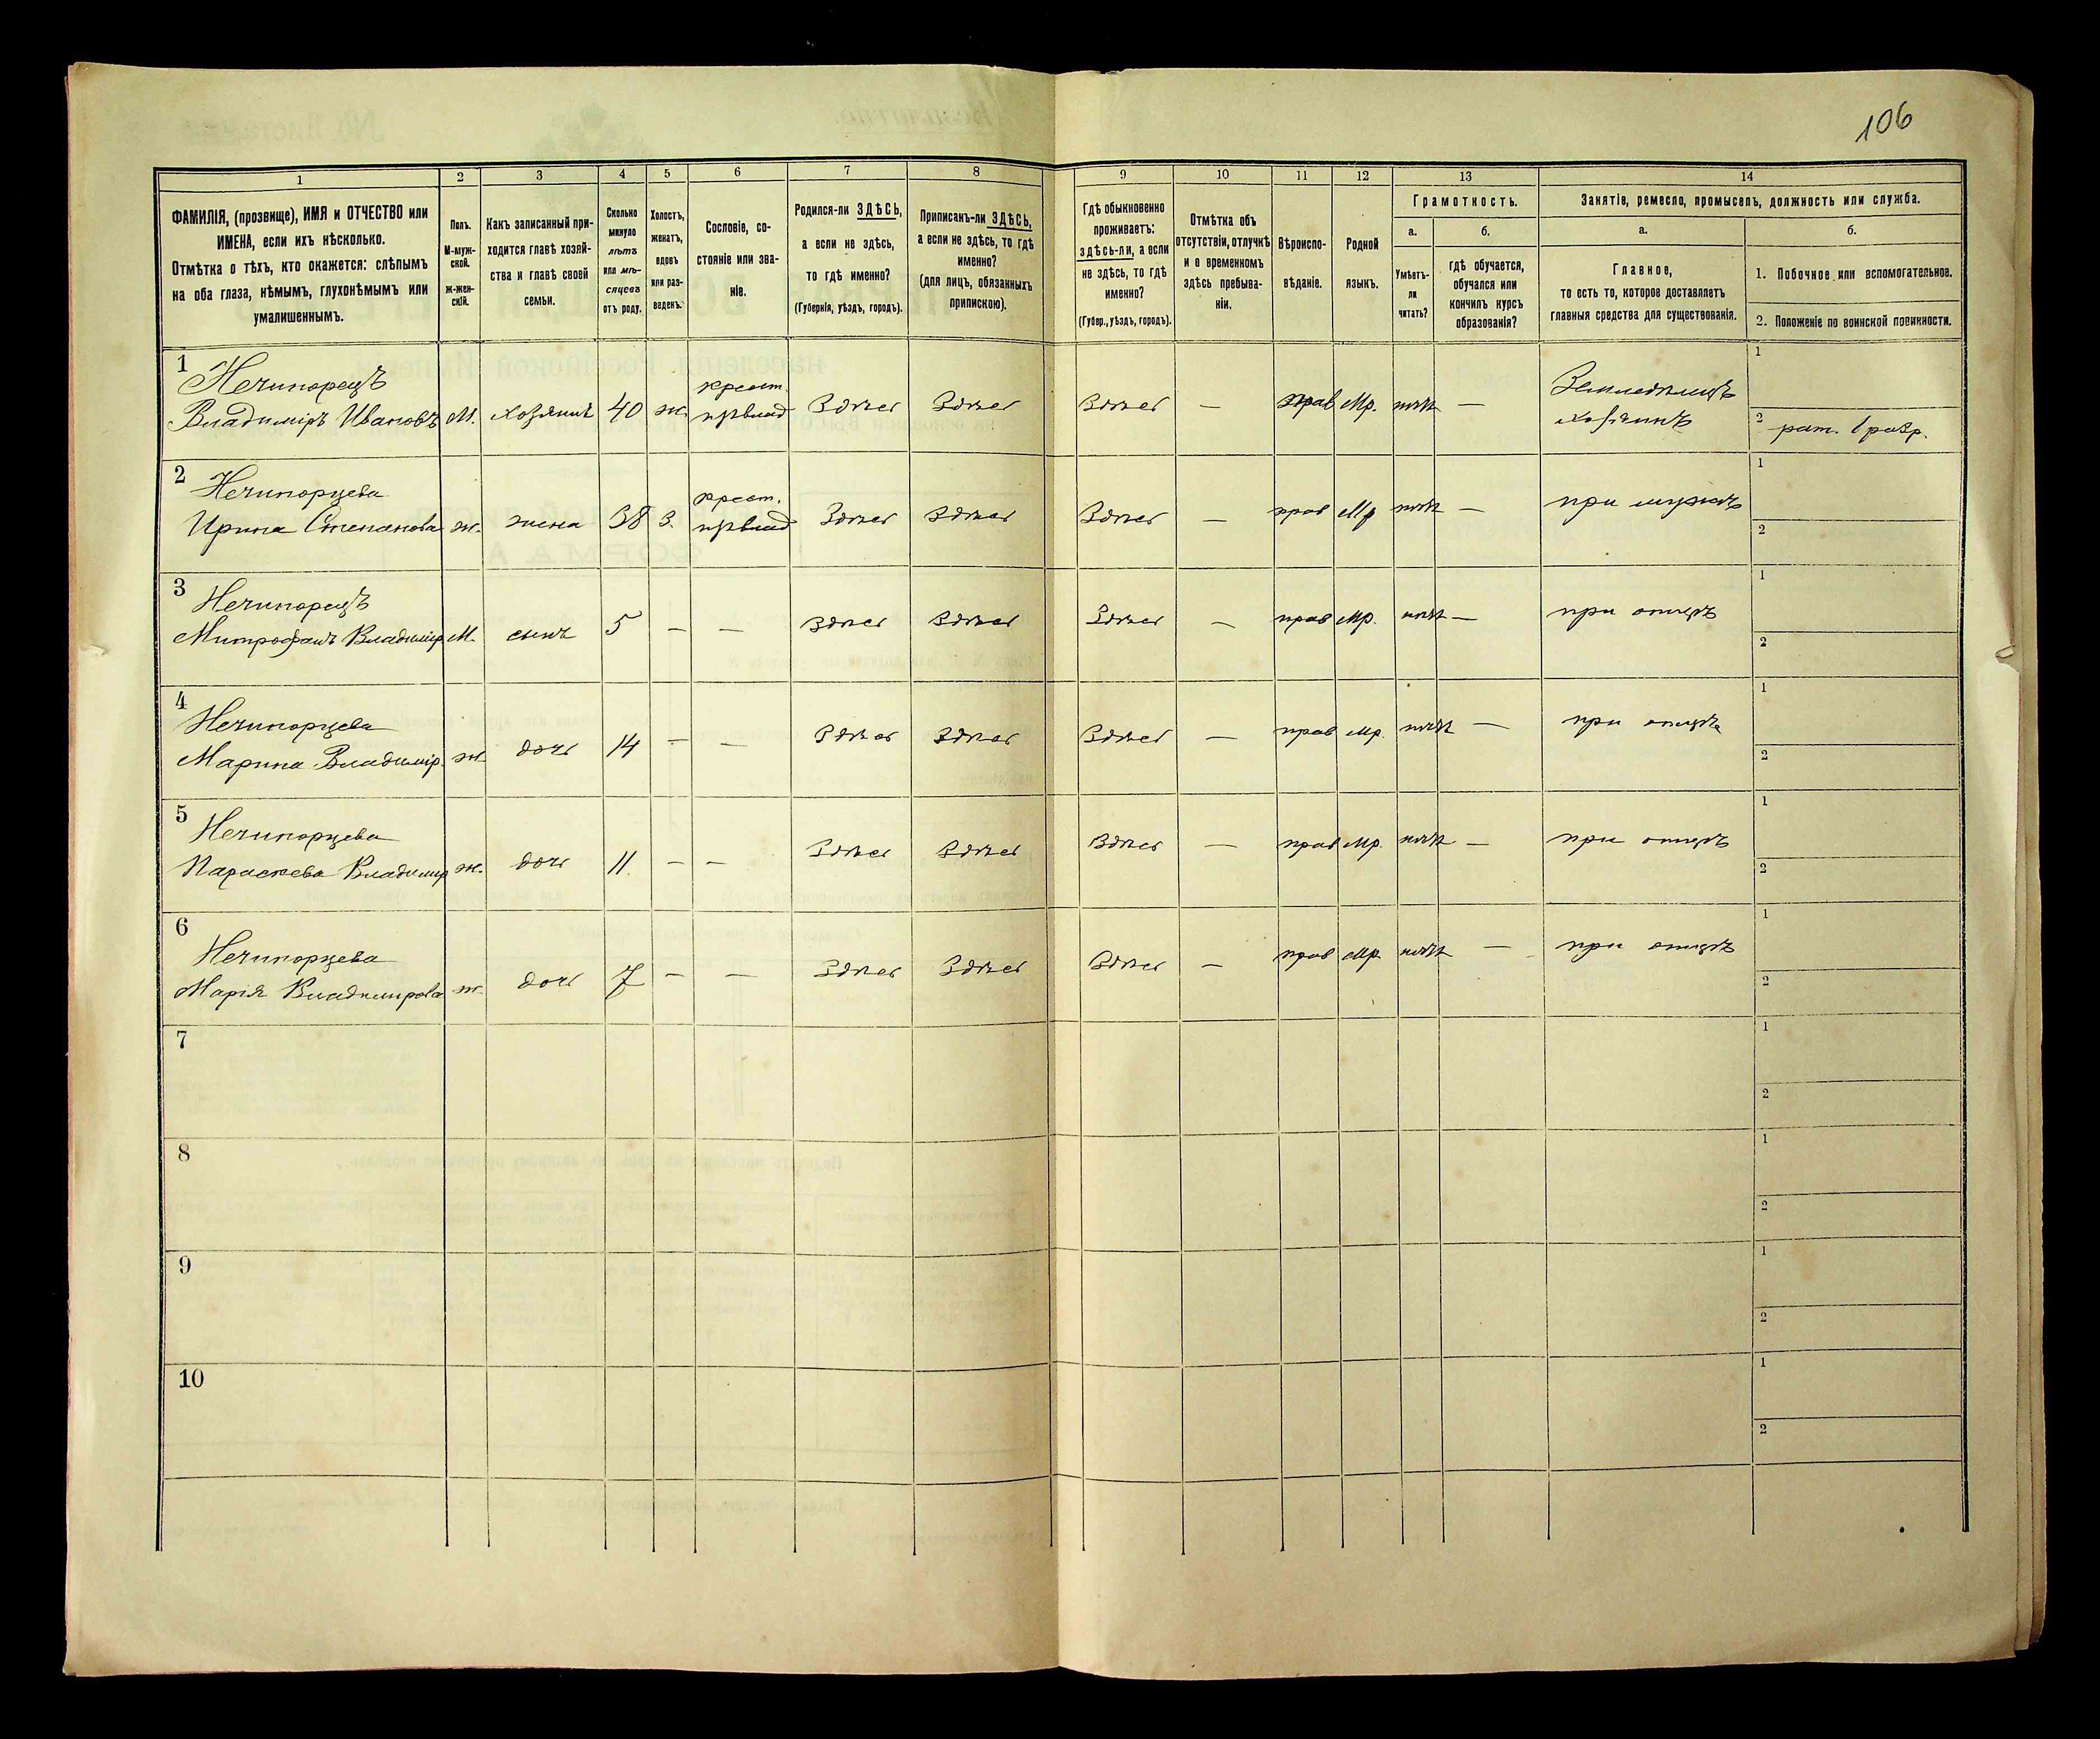 106
1 2 3 4 5 6 7 8 9 10 11 12 13 14
ФАМИЛІЯ, (прозвище), ИМЯ и ОТЧЕСТВО или ИМЕНА, если ихъ нѣсколько.
Отмѣтка о тѣхъ, кто окажется: слѣпымъ на оба глаза, нѣмымъ, глухонѣмымъ или умалишеннымъ.
Полъ.
М-мужской.
ж-женскій.
Какъ записанный приходится главѣ хозяйства и главѣ своей семьи.
Сколько минуло лѣтъ или мѣсяцевъ отъ роду.
Холостъ, женатъ, вдовъ или разведенъ.
Сословіе, состояніе или званіе.
Родился-ли ЗДѢСЬ, а если не здѣсь, то гдѣ именно?
(Губернія, уѣздъ, городъ).
Приписанъ-ли ЗДѢСЬ, а если не здѣсь, то гдѣ именно?
(для лицъ, обязанныхъ припискою).
Гдѣ обыкновенно проживаетъ: здѣсь-ли, а если не здѣсь, то гдѣ именно?
(Губер., уѣздъ, городъ).
Отмѣтка объ отсутствіи, отлучкѣ и о временномъ здѣсь пребываніи.
Вѣроисповѣданіе.
Родной языкъ.
Грамотность.
а.
Умѣетъ-ли читать?
б.
гдѣ обучается, обучался или кончилъ курсъ образованія?
Занятіе, ремесло, промыселъ, должность или служба.
а.
Главное,
то есть то, которое доставляетъ главныя средства для существованія.
б.
1. Побочное или вспомогательное.
2. Положеніе по воинской повинности.
1 Нечипорецъ крест. Земледѣлецъ 1
Владиміръ Ивановъ М. хозяинъ 40 ж. Здѣсь Здѣсь Здѣсь — прав Мр. нѣтъ — хозяинъ 2 рат. 1 разр.
2 Нечипорцева крест. 1
Ирина Степанова ж. жена 38 З. Здѣсь Здѣсь Здѣсь — прав Мр нѣтъ — при мужѣ 2
3 Нечипорецъ 1
Митрофанъ Владимір М. сынъ 5 — — Здѣсь Здѣсь Здѣсь — прав Мр. нѣтъ — при отцѣ 2
4 Нечипорцева 1
Марина Владимір. ж. дочь 14 — — Здѣсь Здѣсь Здѣсь — прав Мр. нѣтъ — при отцѣ 2
5 Нечипорцева 1
Параскева Владимир ж. дочь 11. — — Здѣсь Здѣсь Здѣсь — прав Мр. нѣтъ — при отцѣ 2
6 Нечипорцева 1
Марія Владимирова ж. дочь 7 — — Здѣсь Здѣсь Здѣсь — прав Мр. нѣтъ — при отцѣ 2
7 1
2
8 1
2
9 1
2
10 1
2